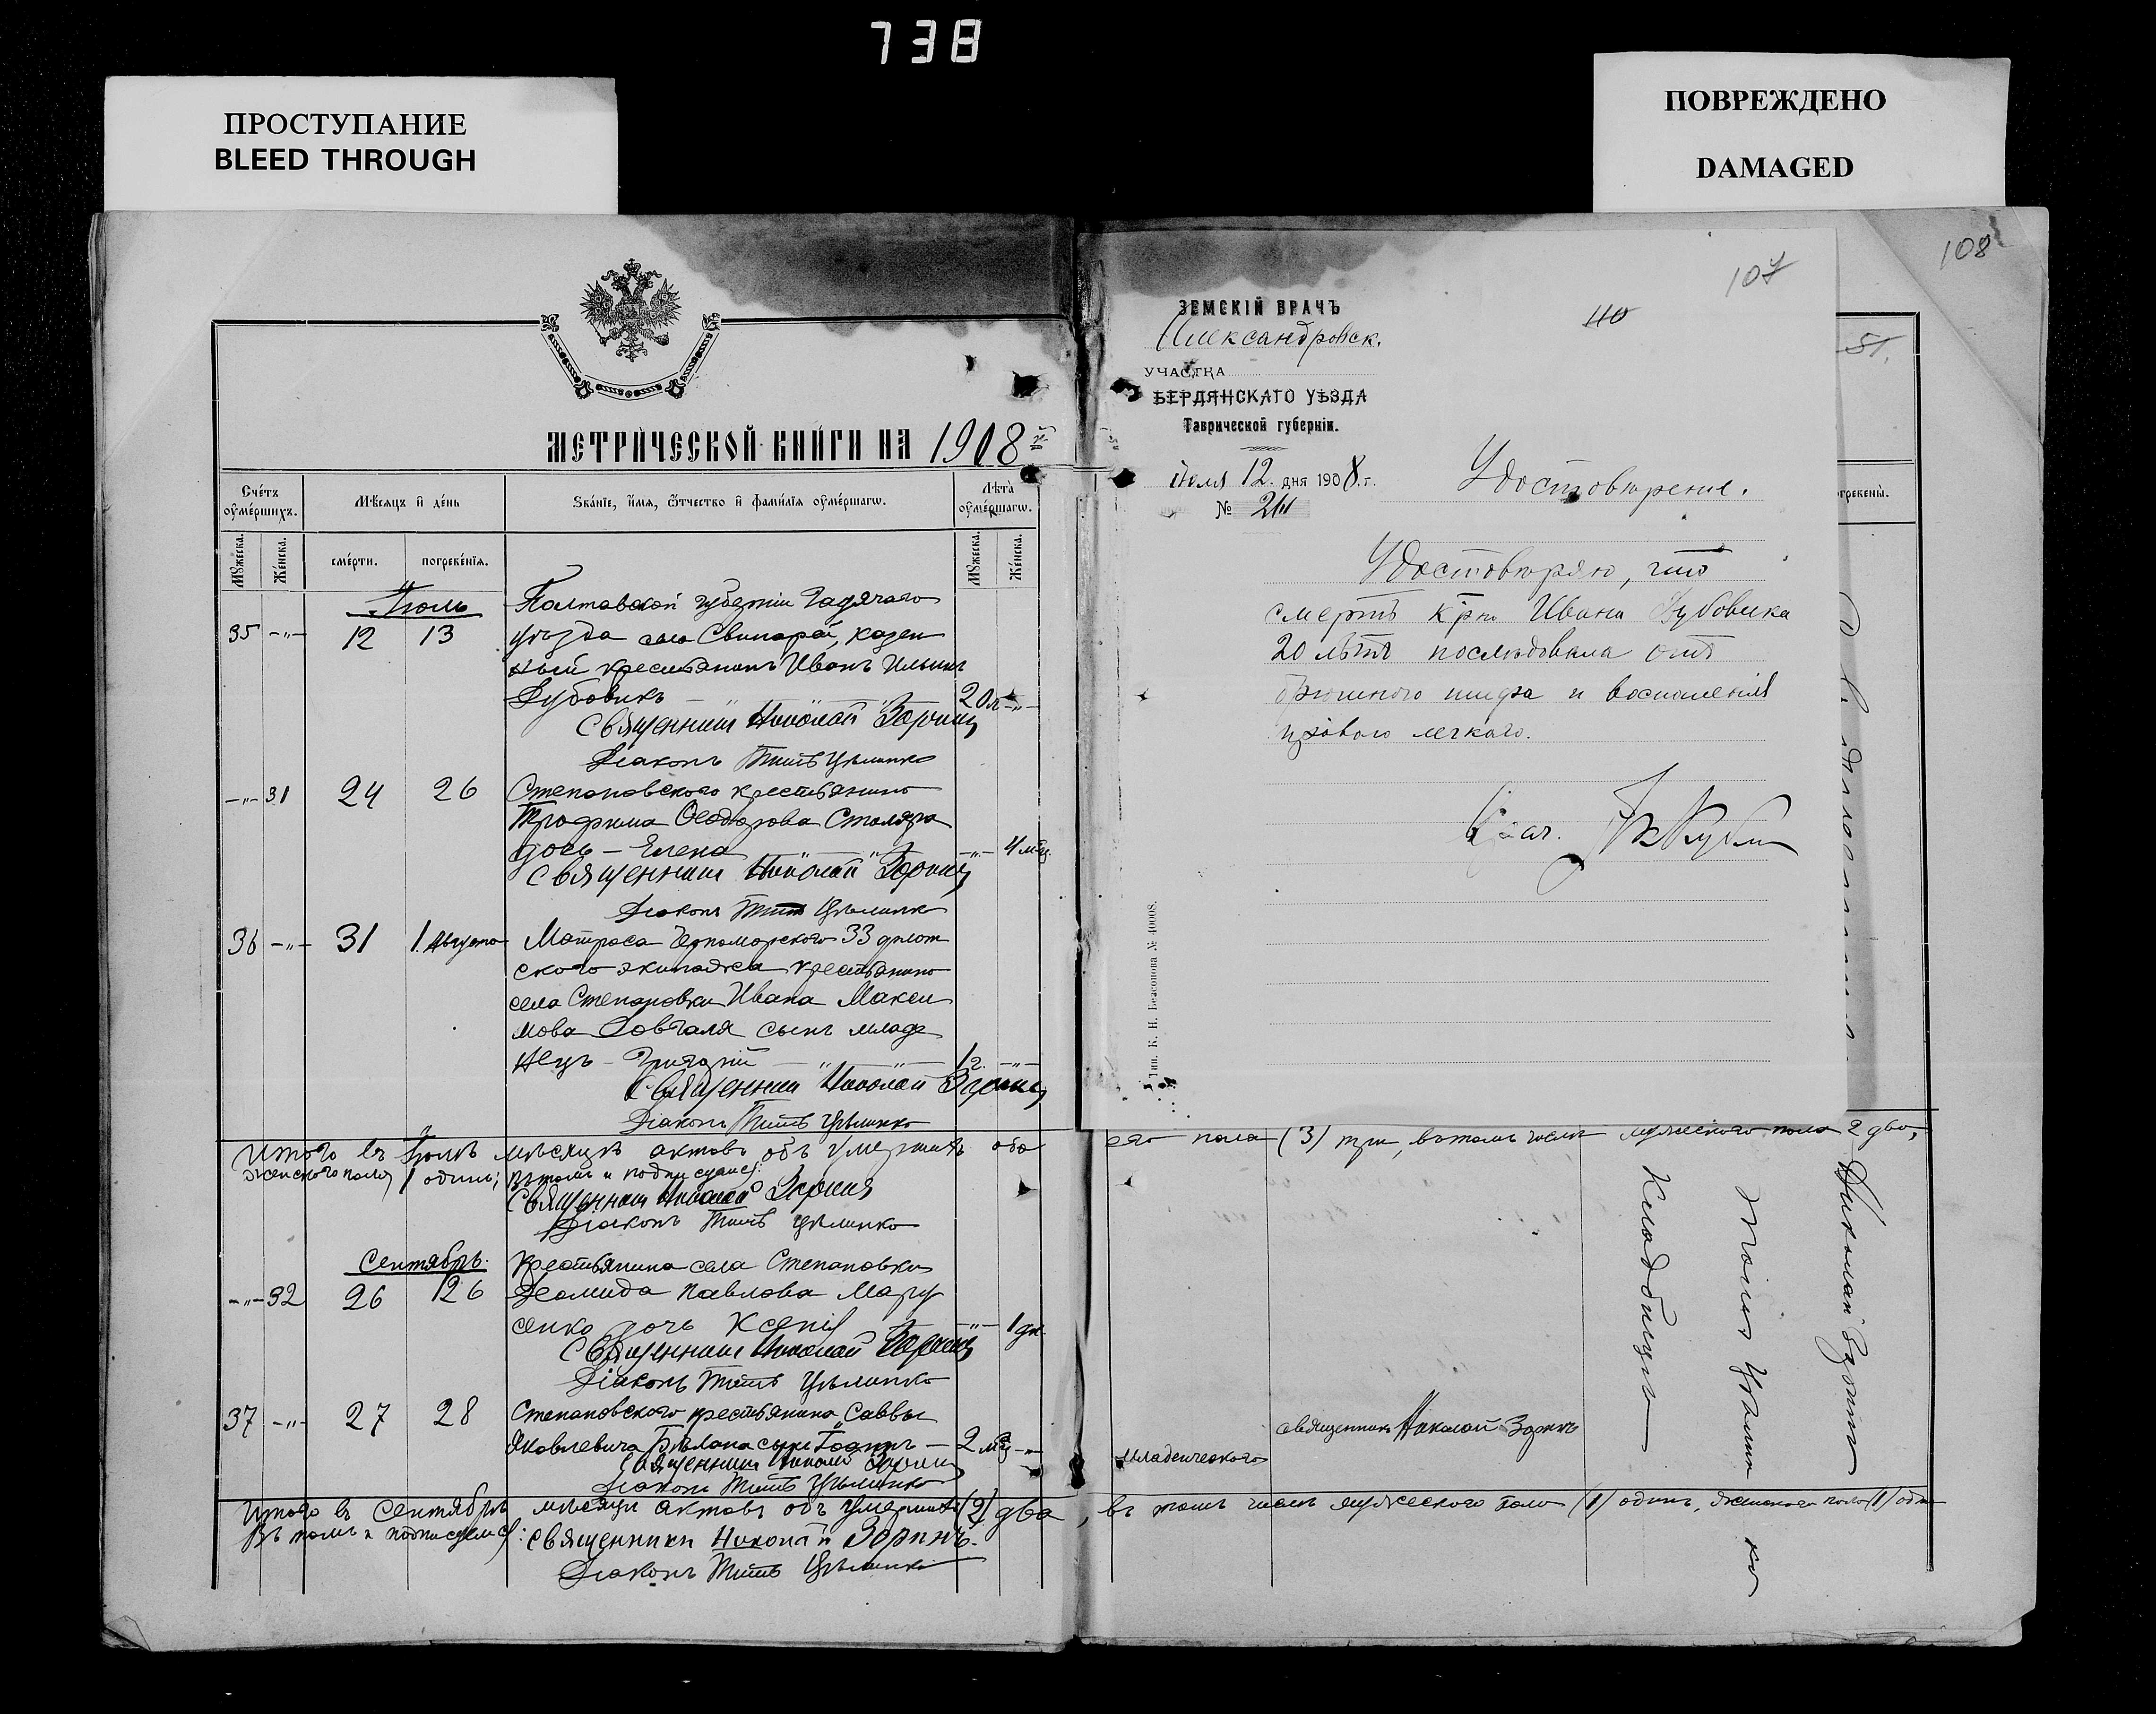 738
ПРОСТУПАНИЕ
BLEED THROUGH
ПОВРЕЖДЕНО
DAMAGED
МЕТРИЧЕСКОЙ КНИГИ НА 1908 й
Счетъ умершихъ.
Мѣсяцъ и день
Званіе, имя, отчество и фамилія умершаго.
Лѣта умершаго.
Мужеска.
Женска.
смерти.
погребенія.
Мужеска.
Женска.
Іюль
Полтавской губерніи Гадячаго
35 -"- 12 13 уѣзда села Свинарой, казен
ный крестьянинъ Иванъ Ильинъ
Дубовикъ 20 л -"-
Священникъ Николай Зоринъ
Діаконъ Титъ Цѣлинко
-"- 31 24 26 Степановского крестьянина
Трофима Ѳеодорова Столяра
дочь - Елена -"- 4 мѣц.
Священникъ Николай Зоринъ
Діаконъ Титъ Цѣлинко
36 -"- 31 1. Августа Матроса Черноморского 33 флот
ского экипажа крестьянина
села Степановки Ивана Макси
мова Довгаля сынъ младе
нецъ - Григорій 1 г. -"-
Священникъ Николай Зоринъ
Діаконъ Титъ Цѣлинко
Итого въ Іюлѣ мѣсяцѣ актовъ объ умершихъ обо
женского пола 1 одинъ; въ томъ и подписуемся:
Священникъ Николай Зоринъ
Діаконъ Титъ Цѣлинко
Сентябрь.
Крестьянина села Степановки
-"- 32 26 26 Деомида Павлова Мару
сенко дочь Ксенія -"- 1 дн.
Священникъ Николай Зоринъ
Діаконъ Титъ Цѣлинко
37 -"- 27 28 Степановского крестьянина Саввы
Яковлевича сынъ 2 мѣц -"-
Священникъ Николай Зоринъ
Діаконъ Титъ Цѣлинко
Итого въ Сентябрѣ мѣсяцѣ актовъ объ умершихъ (2) два
Въ томъ и подписуемся: Священникъ Николай Зоринъ.
Діаконъ Титъ Цѣлинко
108
107
40
51.
ЗЕМСКІЙ ВРАЧЪ
Александровск.
УЧАСТКА
БЕРДЯНСКАГО УѢЗДА
Таврической губерніи.
Іюля 12 дня 1908 г.
№ 261
Удостовѣреніе.
Удостовѣряю, что
смерть кр-на Ивана Дубовика
20 лѣтъ послѣдовала отъ
брюшного тифа и воспаленія
праваго легкаго.
Врач.
Тип. К. Н. Безсонова № 40008.
погребены.
его пола (3) три, въ томъ числѣ мужеского пола 2 два,
Кладбищѣ
Николай Зоринъ
Младенческого
священникъ Николай Зоринъ
, въ томъ числѣ мужеского пола (1) одинъ, женского пола (1) одн